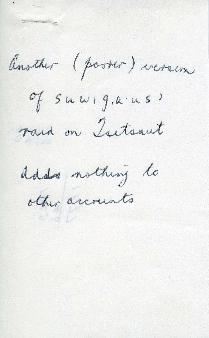 Another (poorer) version
of suwiga·us'
raid on Tsetsaut
adds nothing to
other accounts